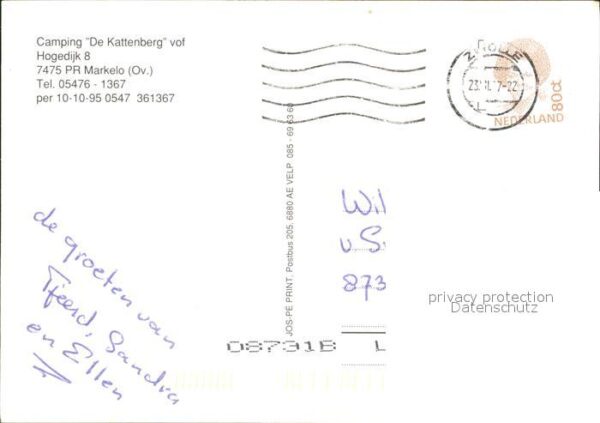 Camping "De Kattenberg" vof
Hogedijk 8
7475 PR Markelo (Ov.)
Tel. 05476 - 1367
per 10-10-95 0547 361367
ZWOLLE
80ct
NEDERLAND
JOS-PE PRINT, Postbus 205, 6880 AE VELP 085 - 69 63 60
de groeten van
Tjeerd, Sandra
en Ellen
Wil
v S
873
privacy protection
Datenschutz
08731B L